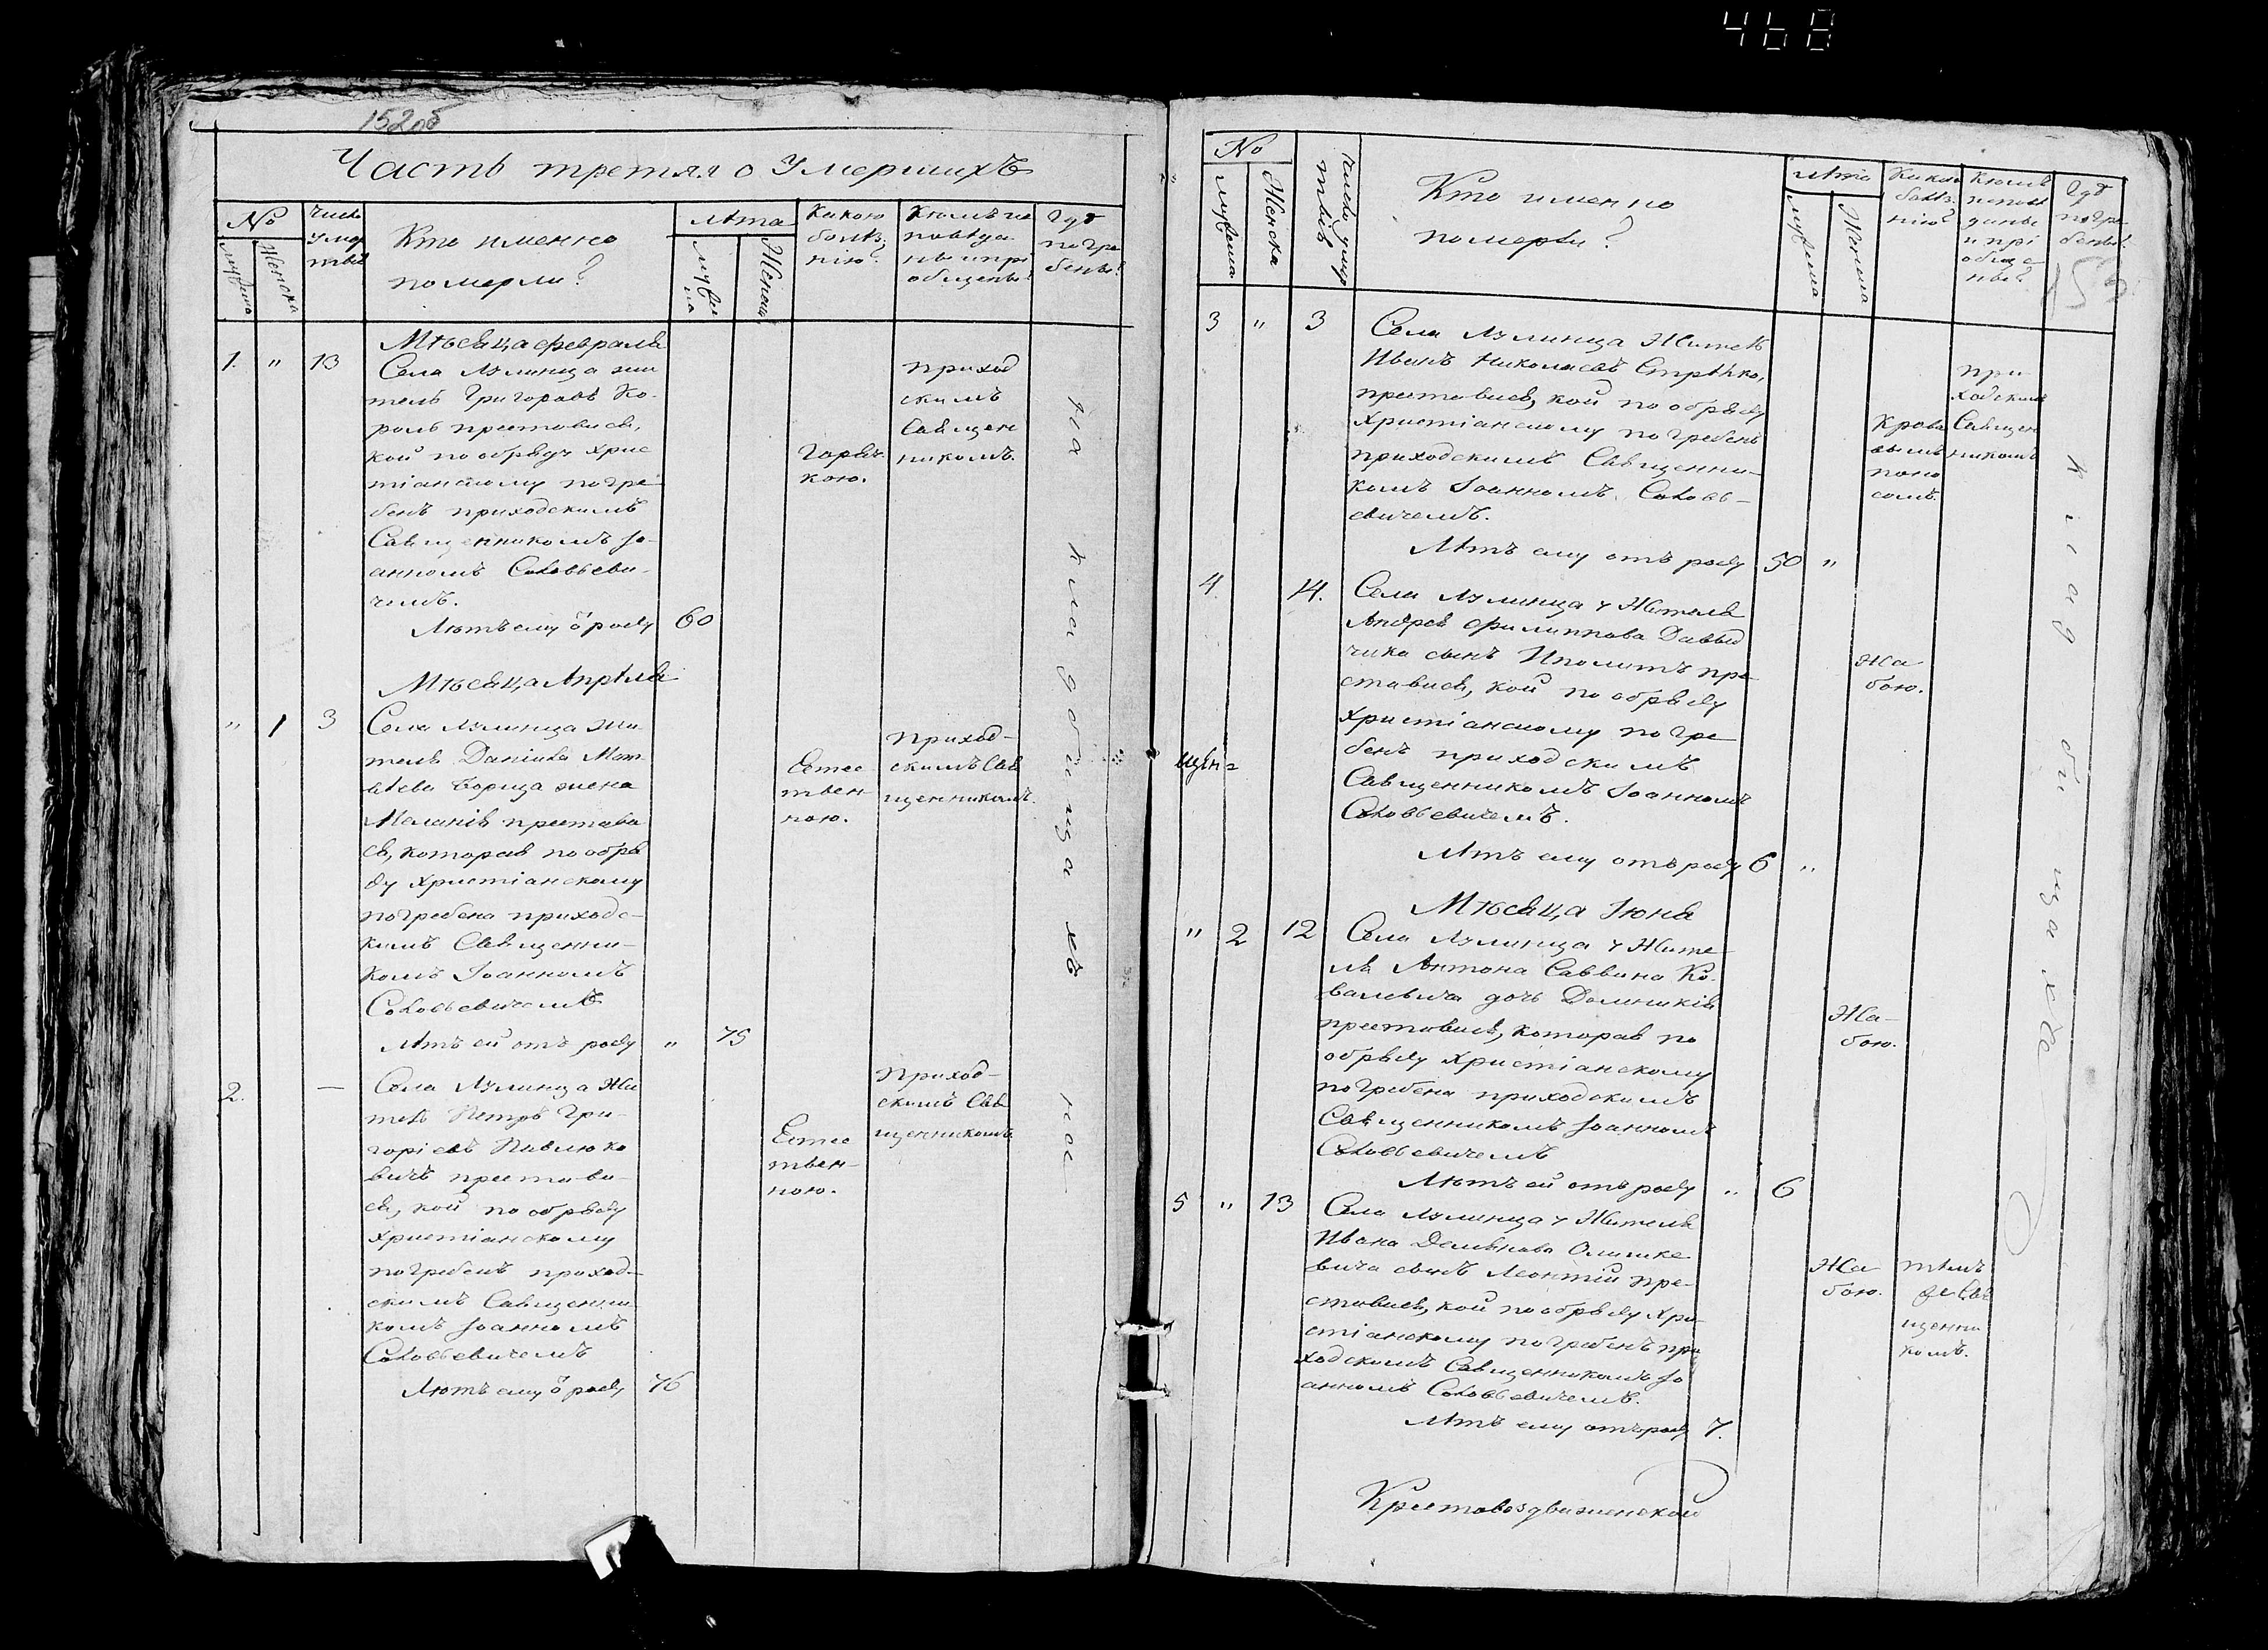 468
152об
Часть третяя о Умершихъ
№
Кто именно
померли?
Лѣта
Какою
болѣз
нію?
погре
бены?
Мѣсяца февраля
1. " 13
Села Лулинца жи
тель Григорей Ко-
роль преставися,
кой по обряду хрис
тіанскому погре-
бенъ приходскимъ
Священникомъ Іо-
анномъ Соловьеви-
чемъ.
Лѣтъ ему ѿ роду 60
Горяч
кою.
Приход
скимъ
Священ
никомъ.
Мѣсяца Апрѣля
" 1 3
Села Лулинца жи-
теля Даніила Мат-
вѣева жена
Меланія преставися
ся, которая по обря
ду Христіанскому
погребена приходс-
кимъ Священни-
комъ Іоанномъ
Соловьевичемъ
Лѣтъ ей отъ роду " 75
Естес
твен-
ною.
Приход-
скимъ Свя
щенникомъ.
2. —
Села Лулинца Жи
тель Петръ Гри-
горіевъ Павлюко
вичъ престави-
ся, кой по обряду
христіанскому
погребенъ приход-
скимъ Священни-
комъ Іоанномъ
Соловьевичемъ
Лѣтъ ему ѿ роду 76
Естес
твен-
ною.
Приход-
скимъ Свя
щенникомъ.
на кладбищахъ
№
Мужеска
Женска
Кто именно
померли?
Лѣта
Какою
болѣз
нію?
Кѣмъ
исповѣ
даны
и прі
обще
ны?
Гдѣ
погре
бены?
3 " 3
Села Лулинца Житель
Иванъ Николаевъ Стрѣлко,
преставися, кой по обряду
Христіанскому погребенъ
приходскимъ Священни-
комъ Іоанномъ Соловь-
евичемъ.
Лѣтъ ему отъ роду 50 "
Крова
вымъ
поно
сомъ.
при
ходскимъ
Священ
никомъ
4. 14.
Села Лулинца у Жителя
Андрея Филиппова Давыд
чика сынъ Иполитъ пре
ставися, кой по обряду
Христіанскому погре
бенъ приходскимъ
Священникомъ Іоанномъ
Соловьевичемъ.
Лѣтъ ему отъ роду 6 "
Жа
бою.
Мѣсяца Іюня
" 2 12
Села Лулинца у Жите-
ля Антона Саввина Ко-
валевича дочь Доминикія
преставися, которая по
обряду Христіанскому
погребена приходскимъ
Священникомъ Іоанномъ
Соловьевичемъ
Лѣтъ ей отъ роду " 6
Жа-
бою.
5 " 13
Села Лулинца у Жителя
Ивана Демянова
сынъ Леонтій пре-
ставися, кой по обряду Хри-
стіанскому погребенъ при
ходскимъ Священникомъ Іо
анномъ Соловьевичемъ.
Лѣтъ ему отъ роду 7.
Жа
бою.
тѣмъ
же Свя
щенни
комъ.
Крестовоздвиженской